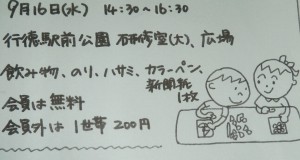 9月16日(水) 14:30~16:30
行徳駅前公園 研修室(大)、広場
飲み物、のり、ハサミ、カラーペン、
新聞紙
1枚
会員は無料
会員外は1世帯200円